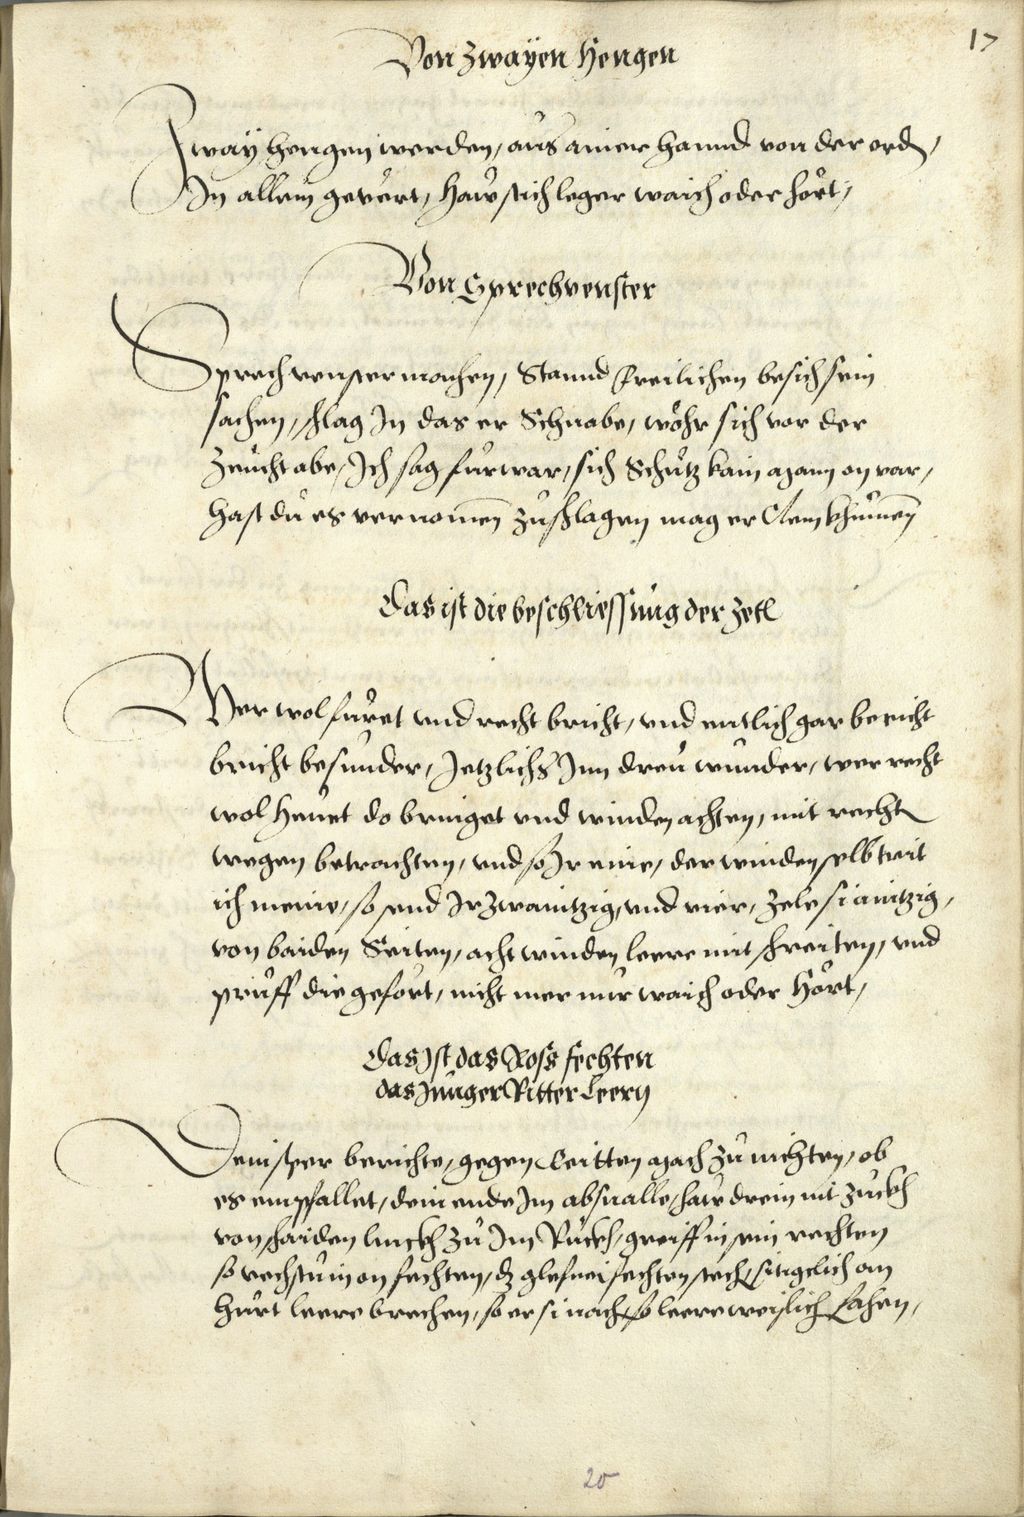 17
Von zwayen Hengen
Zway hengen werden, aus ainer hannd von der erd,
In allem gevert, haw stich leger waich oder hört,
Von Sprechvenster
Sprechvenster machen, Stannd freilichen besich sein
sachen, schlag In das er Schnabe, wöhr sich vor der
zeucht abe, Ich sag fürwar, sich Schütz kain mann on var,
hast du es vernomen zu schlagen mag er klein khumen
Das ist die beschliessung der zetl
Wer wol füret und recht bricht, und entlich gar bericht
bricht besunder, Jetzlichs Inn dreu wunder, wer recht
wol henget do bringet und winden achten, mit rechten
wegen betrachten, und so Ir eine, der winden selb trit
ich meine, so send Ir zwaintzig, und vier, zele si aintzig,
von baiden Seiten, acht winden leere mit schreiten, und
prüff die gefört, nicht mer nur waich oder hört,
Das Ist das Ross fechten
das Junger Ritter Leern
Dein sper berichte, gegen Reitten mach zu nichten, ob
es empfallet, dein ende Im absnalle, haw drein nit zuckh
von schaiden linckh zu Im Ruckh, greiff in sein rechten
so vechstu in on fechten, dz glefnei fechten stech, sitigclich an
hurt leere brechen, so er si nach, so leere weislich Lahen,
20